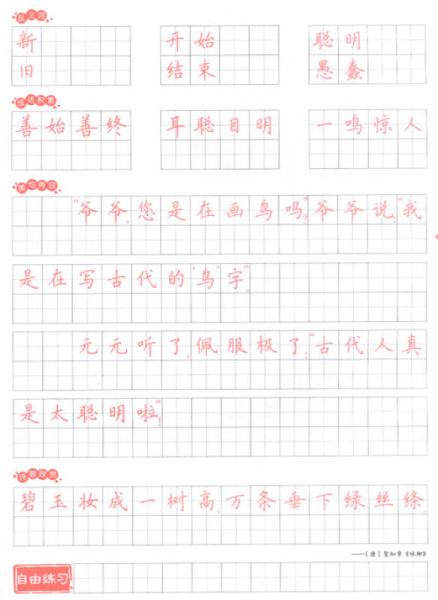 反义词
新 开始 聪明
旧 结束 愚蠢
成语积累
善始善终 耳聪目明 一鸣惊人
“爷爷,您是在画鸟吗?”爷爷说:“我
是在写古代的‘鸟’字。”
元元听了,佩服极了:“古代人真
是太聪明啦!”
碧玉妆成一树高,万条垂下绿丝绦。
——[唐]贺知章《咏柳》
自由练习